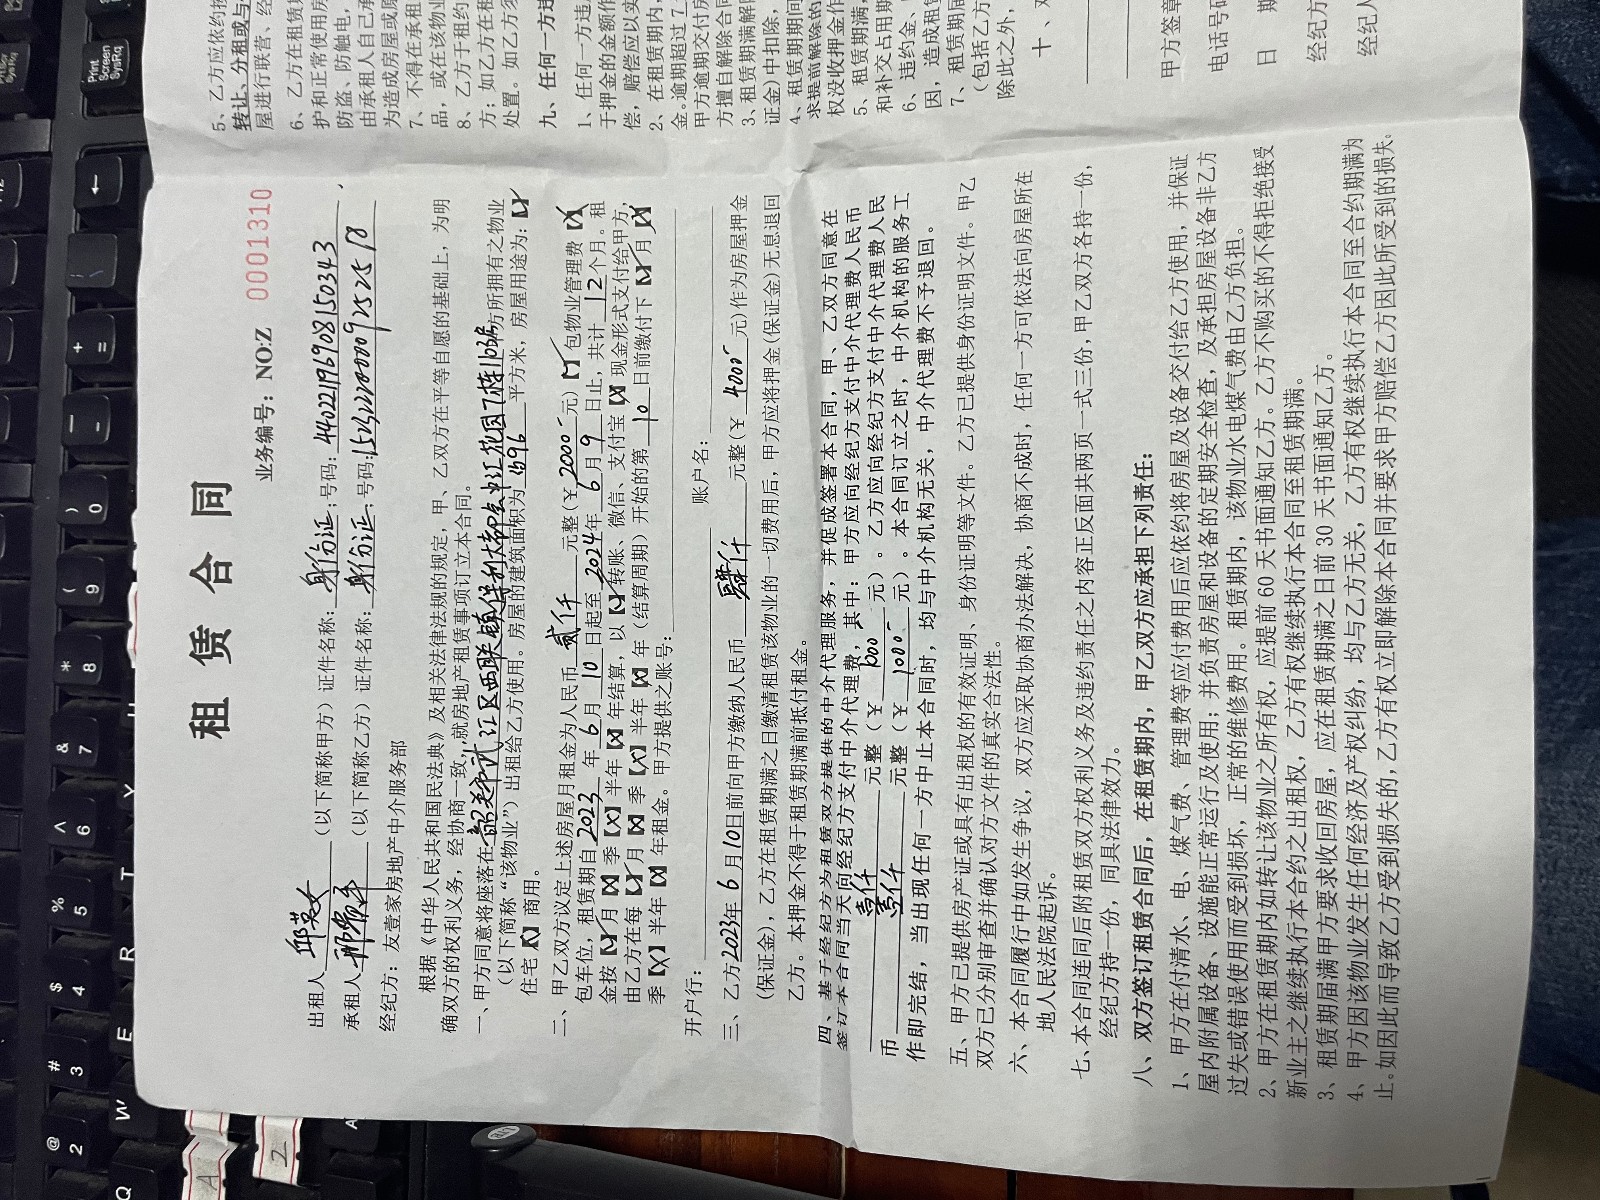 租赁合同
业务编号：NO:Z 0001310
出租人 邱英女 （以下简称甲方）证件名称：身份证；号码：440221196908150343
承租人 （以下简称乙方）证件名称：身份证；号码：
经纪方：友壹家房地产中介服务部
根据《中华人民共和国民法典》及相关法律法规的规定，甲、乙双方在平等自愿的基础上，为明
确双方的权利义务，经协商一致，就房地产租赁事项订立本合同。
一、甲方同意将座落在韶关市武江区西联镇保利大都会 花园7栋 房所拥有之物业
（以下简称“该物业”）出租给乙方使用。房屋的建筑面积为 平方米，房屋用途为：【✓】
住宅【X】商用。
二、甲乙双方议定上述房屋月租金为人民币 贰仟 元整(￥ 2000 元)【✓】包物业管理费【X】
包车位，租赁期自 2023 年 6 月 10 日起至 2024 年 6 月 9 日止，共计 12 个月。租
金按【✓】月【X】季【X】半年【X】年结算，以【✓】转账、微信、支付宝【X】现金形式支付给甲方，
由乙方在每【✓】月【X】季【X】半年【X】年（结算周期）开始的第 10 日前缴付下【✓】月【X】
季【X】半年【X】年租金。甲方提供之账号：
开户行： 账户名：
三、乙方 2023 年 6 月 10 日前向甲方缴纳人民币 肆仟 元整(￥ 4000 元)作为房屋押金
(保证金），乙方在租赁期满之日缴清租赁该物业的一切费用后，甲方应将押金(保证金)无息退回
乙方。本押金不得于租赁期满前抵付租金。
四、基于经纪方为租赁双方提供的中介代理服务，并促成签署本合同，甲、乙双方同意在
签订本合同当天向经纪方支付中介代理费，其中：甲方应向经纪方支付中介代理费人民币
壹仟 元整（￥ 1000 元）。乙方应向经纪方支付中介代理费人民
币 壹仟 元整（￥ 1000 元）。本合同订立之时，中介机构的服务工
作即完结，当出现任何一方中止本合同时，均与中介机构无关，中介代理费不予退回。
五、甲方已提供房产证或具有出租权的有效证明、身份证明等文件。乙方已提供身份证明文件。甲乙
双方已分别审查并确认对方文件的真实合法性。
六、本合同履行中如发生争议，双方应采取协商办法解决，协商不成时，任何一方可依法向房屋所在
地人民法院起诉。
七、本合同连同后附租赁双方权利义务及违约责任之内容正反面共两页一式三份，甲乙双方各持一份，
经纪方持一份，同具法律效力。
八、双方签订租赁合同后，在租赁期内，甲乙双方应承担下列责任：
1、甲方在付清水、电、煤气费、管理费等应付费用后应依约将房屋及设备交付给乙方使用，并保证
屋内附属设备、设施能正常运行及使用；并负责房屋和设备的定期安全检查，及承担房屋设备非乙方
过失或错误使用而受到损坏，正常的维修费用。租赁期内，该物业水电煤气费由乙方负担。
2、甲方在租赁期内如转让该物业之所有权，应提前 60 天书面通知乙方。乙方不购买的不得拒绝接受
新业主之继续执行本合约之出租权，乙方有权继续执行本合同至租赁期满。
3、租赁期届满甲方要求收回房屋，应在租赁期满之日前 30 天书面通知乙方。
4、甲方因该物业发生任何经济及产权纠纷，均与乙方无关，乙方有权继续执行本合同至合约期满为
止。如因此而导致乙方受到损失的，乙方有权立即解除本合同并要求甲方赔偿乙方因此所受到的损失。
5、乙方应依约按
转让、分租或与
屋进行联营、经
6、乙方在租赁期
护和正常使用房
防盗、防触电，
由承租人自己承
为造成房屋或原
7、不得在承租
品，或在该物业
8、乙方于租约
方；如乙方在租
处置。如乙方须
九、任何一方违
1、任何一方违
于押金的金额作
偿，赔偿应以实
2、在租赁期内，
金。逾期超过7
甲方逾期交付房
方擅自解除合同
3、租赁期满解除
证金）中扣除，
4、租赁期期间
求提前解除的
权没收押金作
5、租赁期满，
和补交占用期
6、违约金、
因，造成租赁
7、租赁期届
（包括乙方
除此之外，
十、
甲方签章
电话号码
日 期
经纪方
经纪人